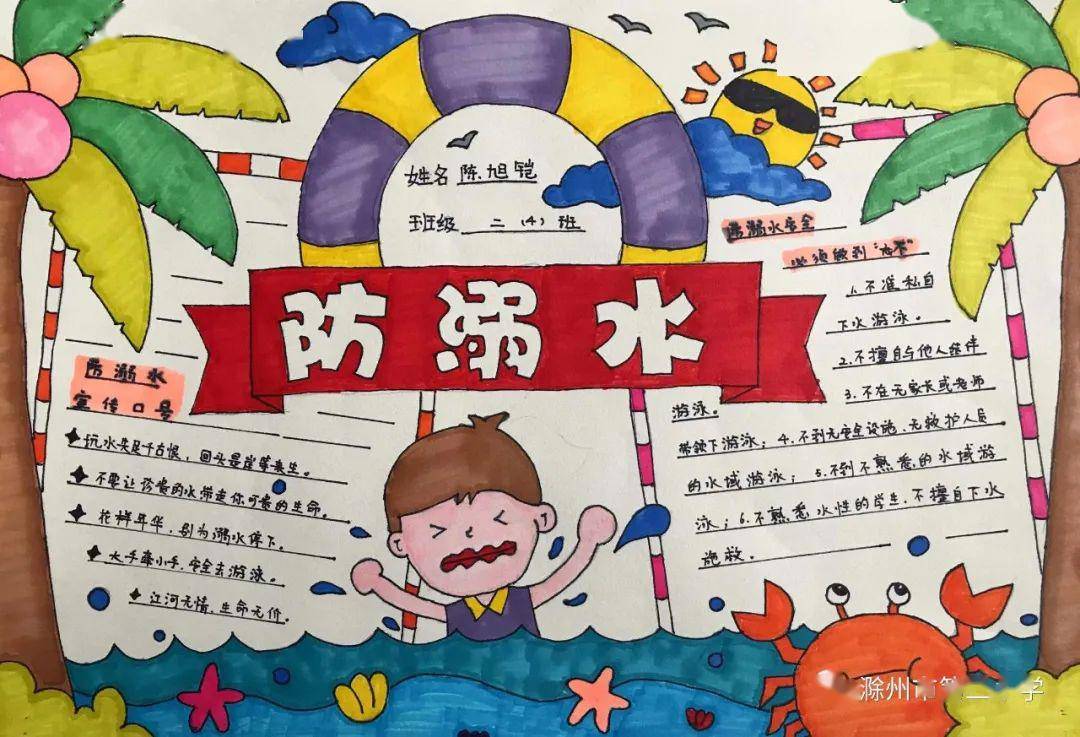 姓名 陈旭铠
班级 二(4)班
防溺水
防溺水
宣传口号
玩水失足千古恨，回头是岸等来生。
不要让珍贵的水带走你可贵的生命。
花样年华，别为溺水停下。
大手牵小手，安全去游泳。
江河无情，生命无价。
防溺水安全
必须做到“六不”
1.不准私自
下水游泳。
2.不擅自与他人结伴
游泳。
3.不在无家长或老师
带领下游泳；4.不到无安全设施、无救护人员
的水域游泳；5.不到不熟悉的水域游
泳；6.不熟悉水性的学生，不擅自下水
施救。
滁州市第二 学